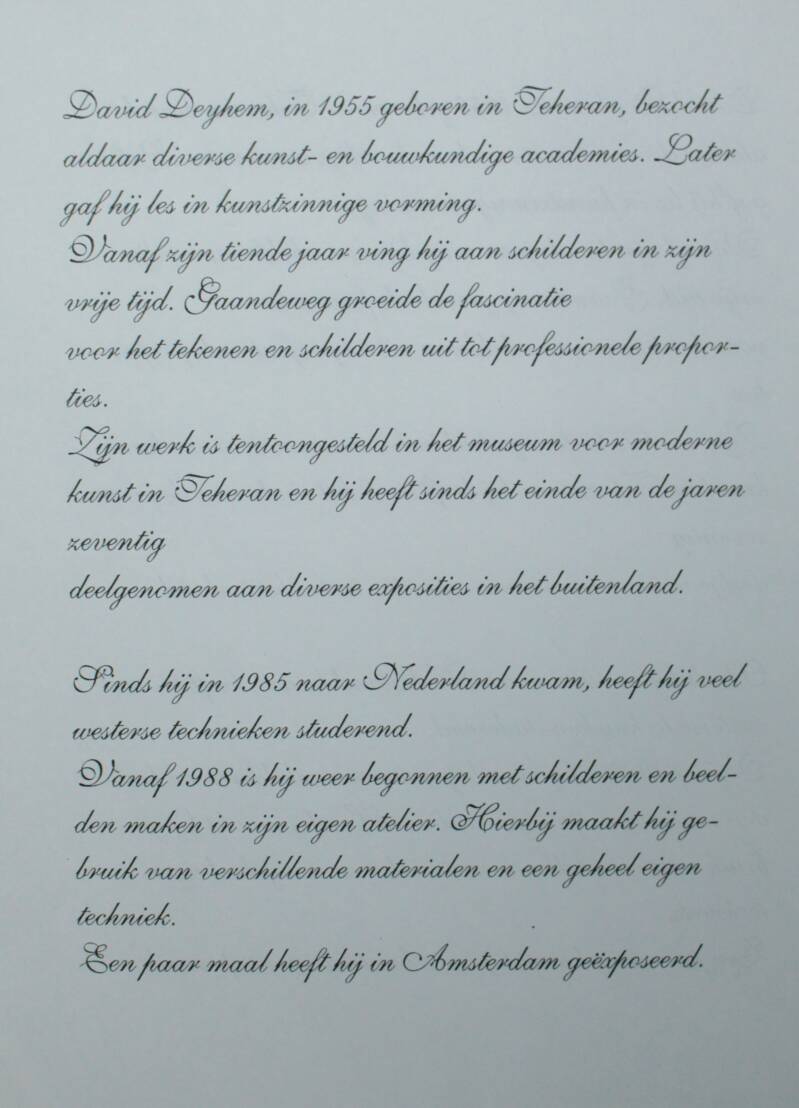 David Deyhem, in 1955 geboren in Teheran, bezocht
aldaar diverse kunst- en bouwkundige academies. Later
gaf hij les in kunstzinnige vorming.
Vanaf zijn tiende jaar ving hij aan schilderen in zijn
vrije tijd. Gaandeweg groeide de fascinatie
voor het tekenen en schilderen uit tot professionele propor-
ties.
Zijn werk is tentoongesteld in het museum voor moderne
kunst in Teheran en hij heeft sinds het einde van de jaren
zeventig
deelgenomen aan diverse exposities in het buitenland.
Sinds hij in 1985 naar Nederland kwam, heeft hij veel
westerse technieken studerend.
Vanaf 1988 is hij weer begonnen met schilderen en beel-
den maken in zijn eigen atelier. Hierbij maakt hij ge-
bruik van verschillende materialen en een geheel eigen
techniek.
Een paar maal heeft hij in Amsterdam geëxposeerd.